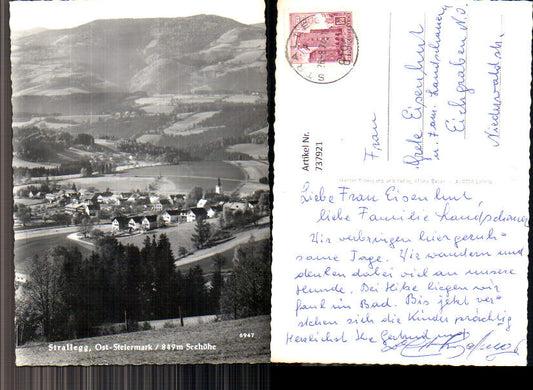 6947
Strallegg, Ost-Steiermark / 849m Seehöhe
Artikel Nr.
737921
Frau
Grete Eisenhut
u. Fam. Landschauer
Eichgraben N.Ö.
Niederwaldstr.
Liebe Frau Eisenhut,
liebe Familie Landschauer
Wir verbringen hier geruh-
same Tage. Wir wandern und
denken dabei viel an unsere
Hunde. Bei Hitze liegen wir
faul im Bad. Bis jetzt ver-
stehen sich die Kinder prächtig
Herzlichst Ihre Gertrud